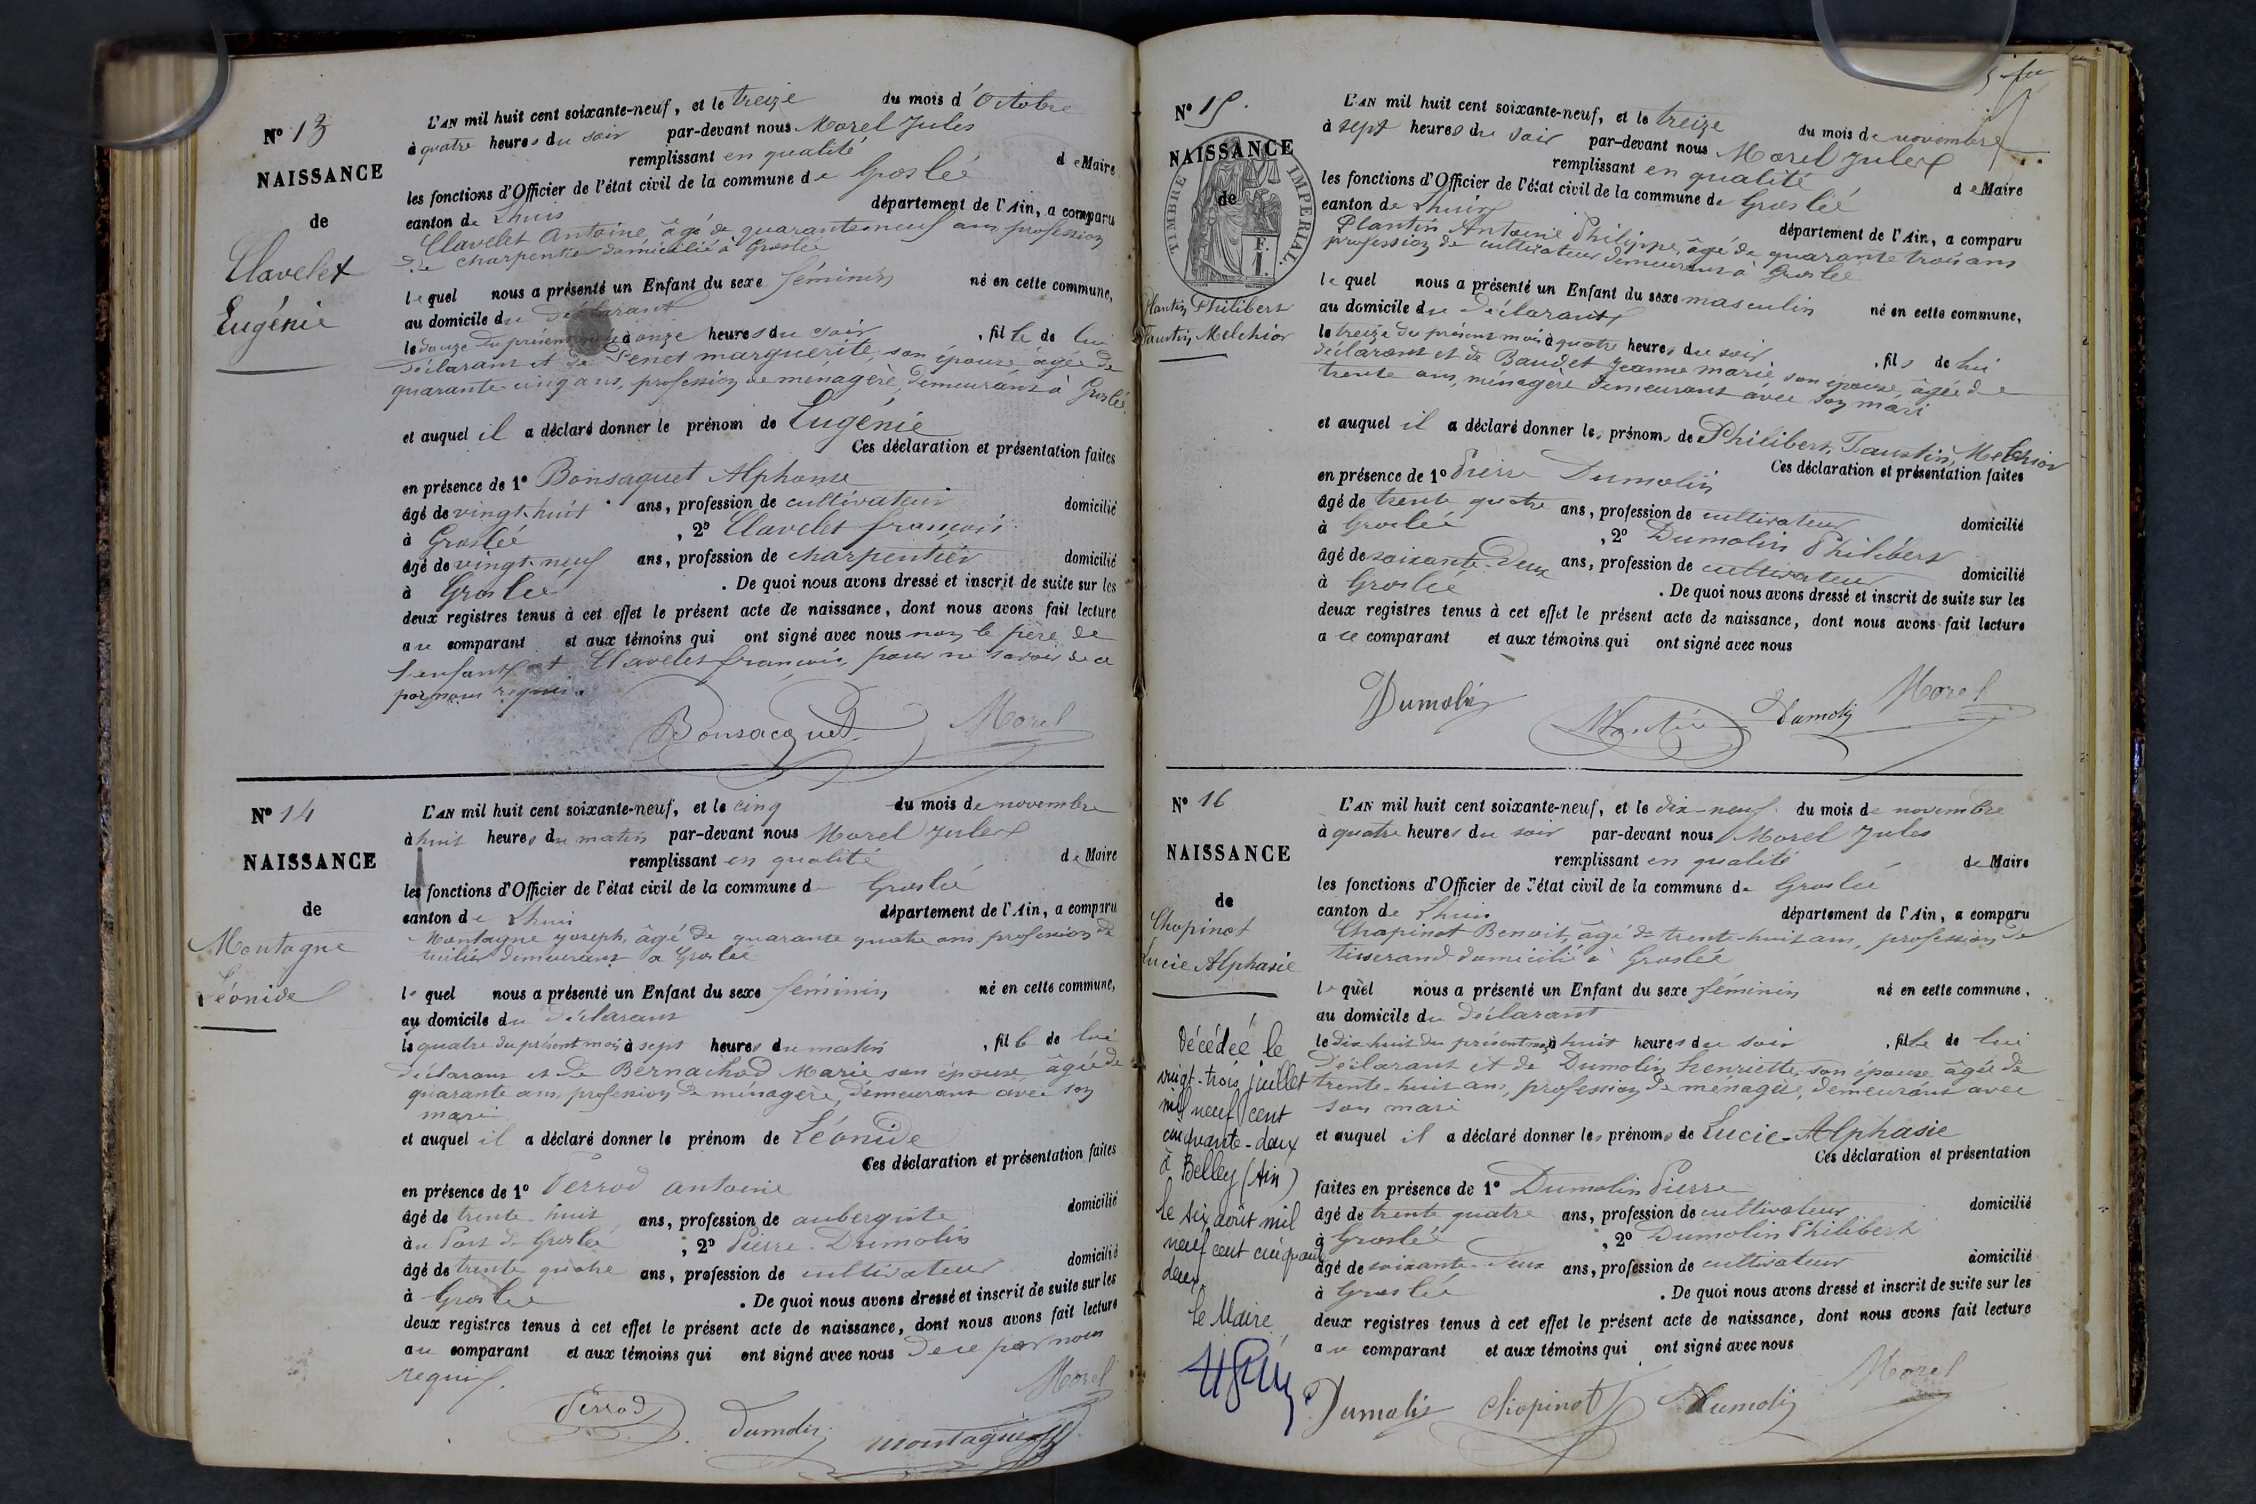 N° 13
NAISSANCE
de
Clavelet
Eugénie
L'AN mil huit cent soixante-neuf, et le treize du mois d'Octobre
à quatre heures du soir par-devant nous Morel Jules
remplissant en qualité de Maire
les fonctions d'Officier de l'état civil de la commune de Groslée
canton de Lhuis département de l'Ain, a comparu
Clavelet Antoine, âgé de quarante neuf ans, profession
de charpentier domicilié à Groslée
lequel nous a présenté un Enfant du sexe féminin né en cette commune,
au domicile du déclarant
le douze du présent mois à onze heures du soir, fille de lui
déclarant et de Penet marguerite, son épouse âgée de
quarante cinq ans, profession de ménagère, demeurant à Groslée
et auquel il a déclaré donner le prénom de Eugénie
Ces déclaration et présentation faites
en présence de 1° Bonsaquet Alphonse
âgé de vingt-huit ans, profession de cultivateur domicilié
à Groslée, 2° Clavelet françois
âgé de vingt-neuf ans, profession de charpentier domicilié
à Groslée. De quoi nous avons dressé et inscrit de suite sur les
deux registres tenus à cet effet le présent acte de naissance, dont nous avons fait lecture
au comparant et aux témoins qui ont signé avec nous non le père de
l'enfant et Clavelet françois, pour ne savoir de ce
par nous requis.
Bonsacquet Morel
N° 14
NAISSANCE
de
Montagne
Léonide
L'AN mil huit cent soixante-neuf, et le cinq du mois de novembre
à huit heures du matin par-devant nous Morel Jules
remplissant en qualité de Maire
les fonctions d'Officier de l'état civil de la commune de Groslée
canton de Lhuis département de l'Ain, a comparu
Montagne Joseph, âgé de quarante quatre ans profession de
tuilier demeurant à Groslée
lequel nous a présenté un Enfant du sexe féminin né en cette commune,
au domicile du déclarant
le quatre du présent mois à sept heures du matin, fille de lui
déclarant et de Bernachod Marie son épouse âgée de
quarante ans, profession de ménagère, demeurant avec son
mari
et auquel il a déclaré donner le prénom de Léonide
Ces déclaration et présentation faites
en présence de 1° Perrod antoine
âgé de trente-huit ans, profession de aubergiste domicilié
au Port de Groslée, 2° Pierre Dumolin
âgé de trente quatre ans, profession de cultivateur domicilié
à Groslée. De quoi nous avons dressé et inscrit de suite sur les
deux registres tenus à cet effet le présent acte de naissance, dont nous avons fait lecture
au comparant et aux témoins qui ont signé avec nous de ce par nous
requis.
Morel
Perrod Dumolin montagne
N° 15.
NAISSANCE
de
TIMBRE IMPERIAL
F.
1.
Plantin Philibert
Faustin Melchior
L'AN mil huit cent soixante-neuf, et le treize du mois de novembre
à sept heures du soir par-devant nous Morel Jules
remplissant en qualité de Maire
les fonctions d'Officier de l'état civil de la commune de Groslée
canton de Lhuis département de l'Ain, a comparu
Plantin Antoine Philippe, âgé de quarante trois ans
profession de cultivateur demeurant à Groslée
lequel nous a présenté un Enfant du sexe masculin né en cette commune,
au domicile du déclarant
le treize du présent mois à quatre heures du soir, fils de lui
déclarant et de Baudet Jeanne marie son épouse, âgée de
trente ans, ménagère demeurant avec son mari
et auquel il a déclaré donner les prénoms de Philibert, Faustin, Melchior
Ces déclaration et présentation faites
en présence de 1° Pierre Dumolin
âgé de trente quatre ans, profession de cultivateur domicilié
à Groslée, 2° Dumolin Philibert
âgé de soixante-deux ans, profession de cultivateur domicilié
à Groslée. De quoi nous avons dressé et inscrit de suite sur les
deux registres tenus à cet effet le présent acte de naissance, dont nous avons fait lecture
a ce comparant et aux témoins qui ont signé avec nous
Dumolin Dumolin Morel
N° 16
NAISSANCE
de
Chopinot
Lucie Alphasie
Décédée le
vingt-trois juillet
mil neuf cent
cinquante-deux
à Belley (Ain)
le six août mil
neuf cent cinquante
deux
le Maire
L'AN mil huit cent soixante-neuf, et le dix-neuf du mois de novembre
à quatre heures du soir par-devant nous Morel Jules
remplissant en qualité de Maire
les fonctions d'Officier de l'état civil de la commune de Groslée
canton de Lhuis département de l'Ain, a comparu
Chopinot Benoit, âgé de trente-huit ans, profession de
tisserand domicilié à Groslée
lequel nous a présenté un Enfant du sexe féminin né en cette commune,
au domicile du déclarant
le dix huit du présent mois à huit heures du soir, fille de lui
déclarant et de Dumolin henriette, son épouse âgée de
trente-huit ans, profession de ménagère, demeurant avec
son mari
et auquel il a déclaré donner les prénoms de Lucie-Alphasie
Ces déclaration et présentation
faites en présence de 1° Dumolin Pierre
âgé de trente quatre ans, profession de cultivateur domicilié
à Groslée, 2° Dumolin Philibert
âgé de soixante-deux ans, profession de cultivateur domicilié
à Groslée. De quoi nous avons dressé et inscrit de suite sur les
deux registres tenus à cet effet le présent acte de naissance, dont nous avons fait lecture
au comparant et aux témoins qui ont signé avec nous
Morel
Dumolin Chopinot Dumolin